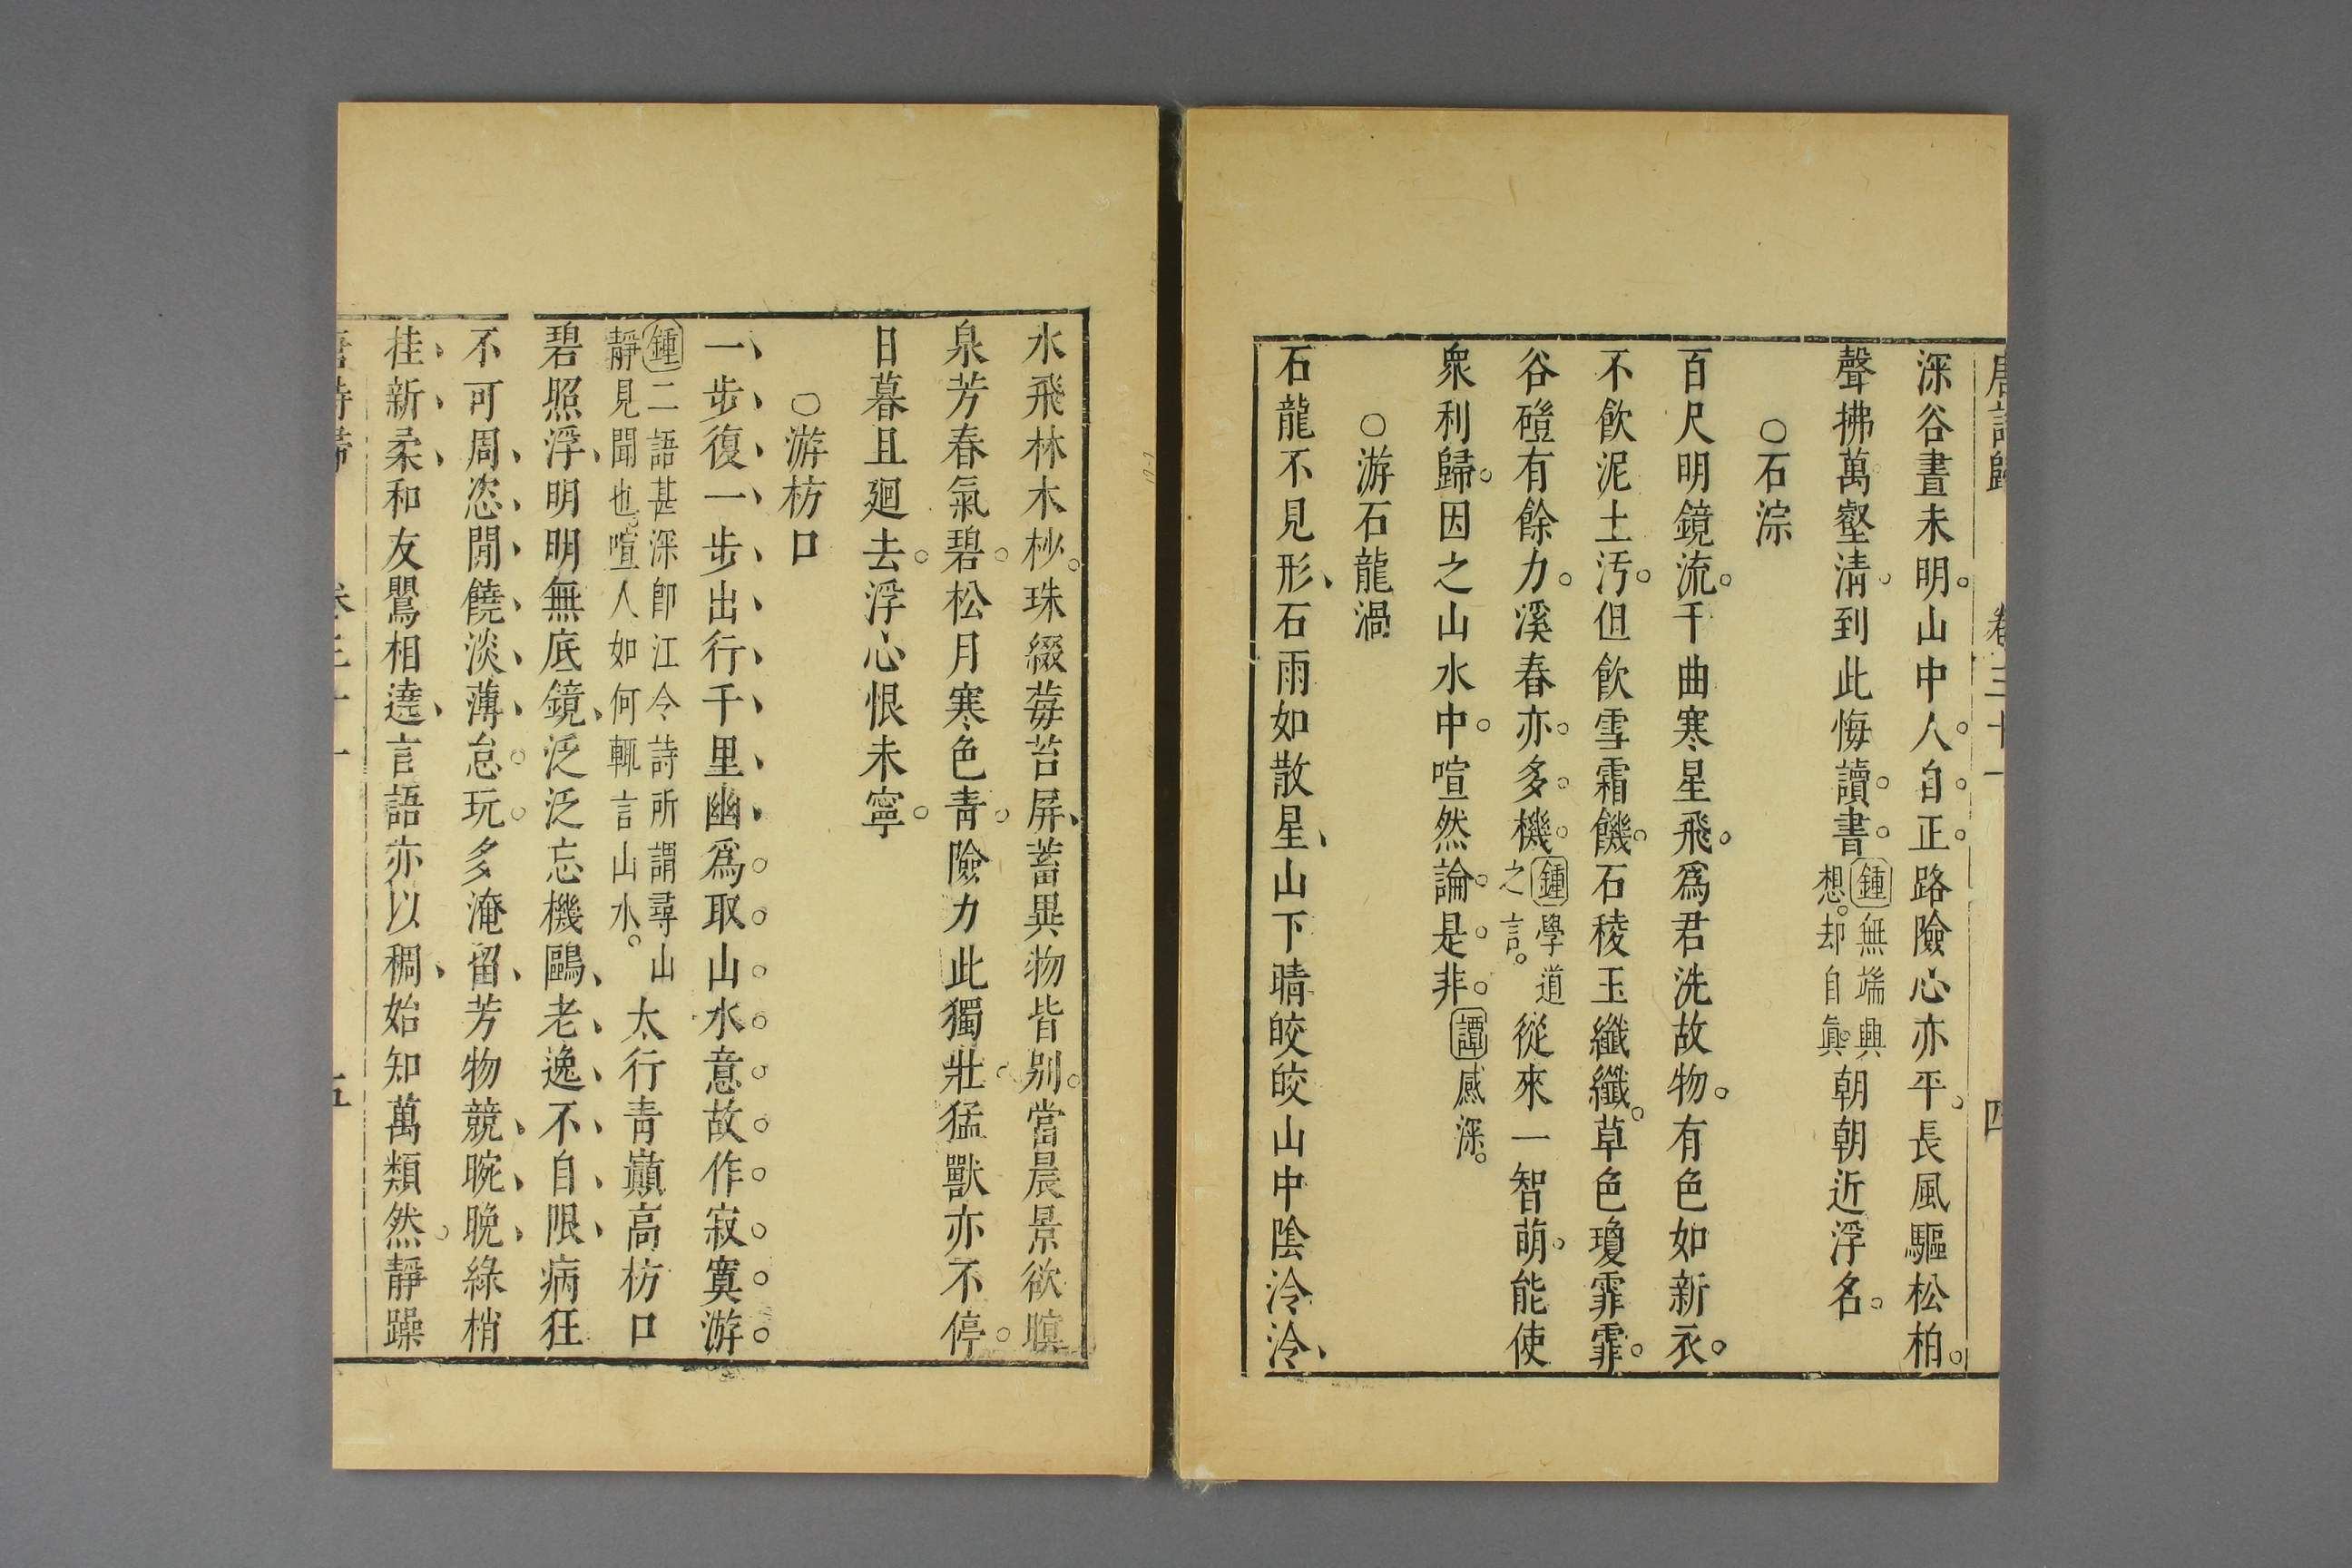 唐詩歸 卷三十一 四
深谷晝未明。山中人。自。正。路險心亦平。長風驅松柏。
聲拂萬壑清。到此悔讀。書。鍾無端興想。却自眞。朝朝近浮名。
○石淙
百尺明鏡流。千曲寒星飛。爲君洗故物。有色如新衣。
不飲泥土汚。但飲雪霜饑。石稜玉纖纖。草色瓊霏霏。
谷磴有餘力。溪春亦。多。機。鍾學道之言。從來一智萌。能使
衆利歸。因之山水中。喧然論。是。非。譚感深。
○游石龍渦
石龍不見形、石雨如散星、山下晴皎皎山中陰泠泠、
水飛林木杪。珠綴莓苔屏、蓄異物皆别。當晨景欲暝
泉芳春氣碧。松月寒色靑。險力此獨壯。猛獸亦不停。
日暮且廻去。浮心恨未寧。
○游枋口
一、步、復、一、步、出、行、千、里、幽、爲。取。山。水。意。故。作。寂。寞。游。
鍾二語甚深卽江令詩所謂尋山靜見聞也。喧人如何輒言山水。太行靑巓高枋口
碧照浮、明明無底鏡、泛泛忘機鷗、老、逸、不、自、限、病狂
不可周、恣、閒、饒、淡、薄、怠。玩。多淹留、芳物競、晼、晚、綠梢
挂、新、柔、和友鸎相遶、言語亦以稠、始知萬類然。靜躁
唐詩歸 卷三十一 五